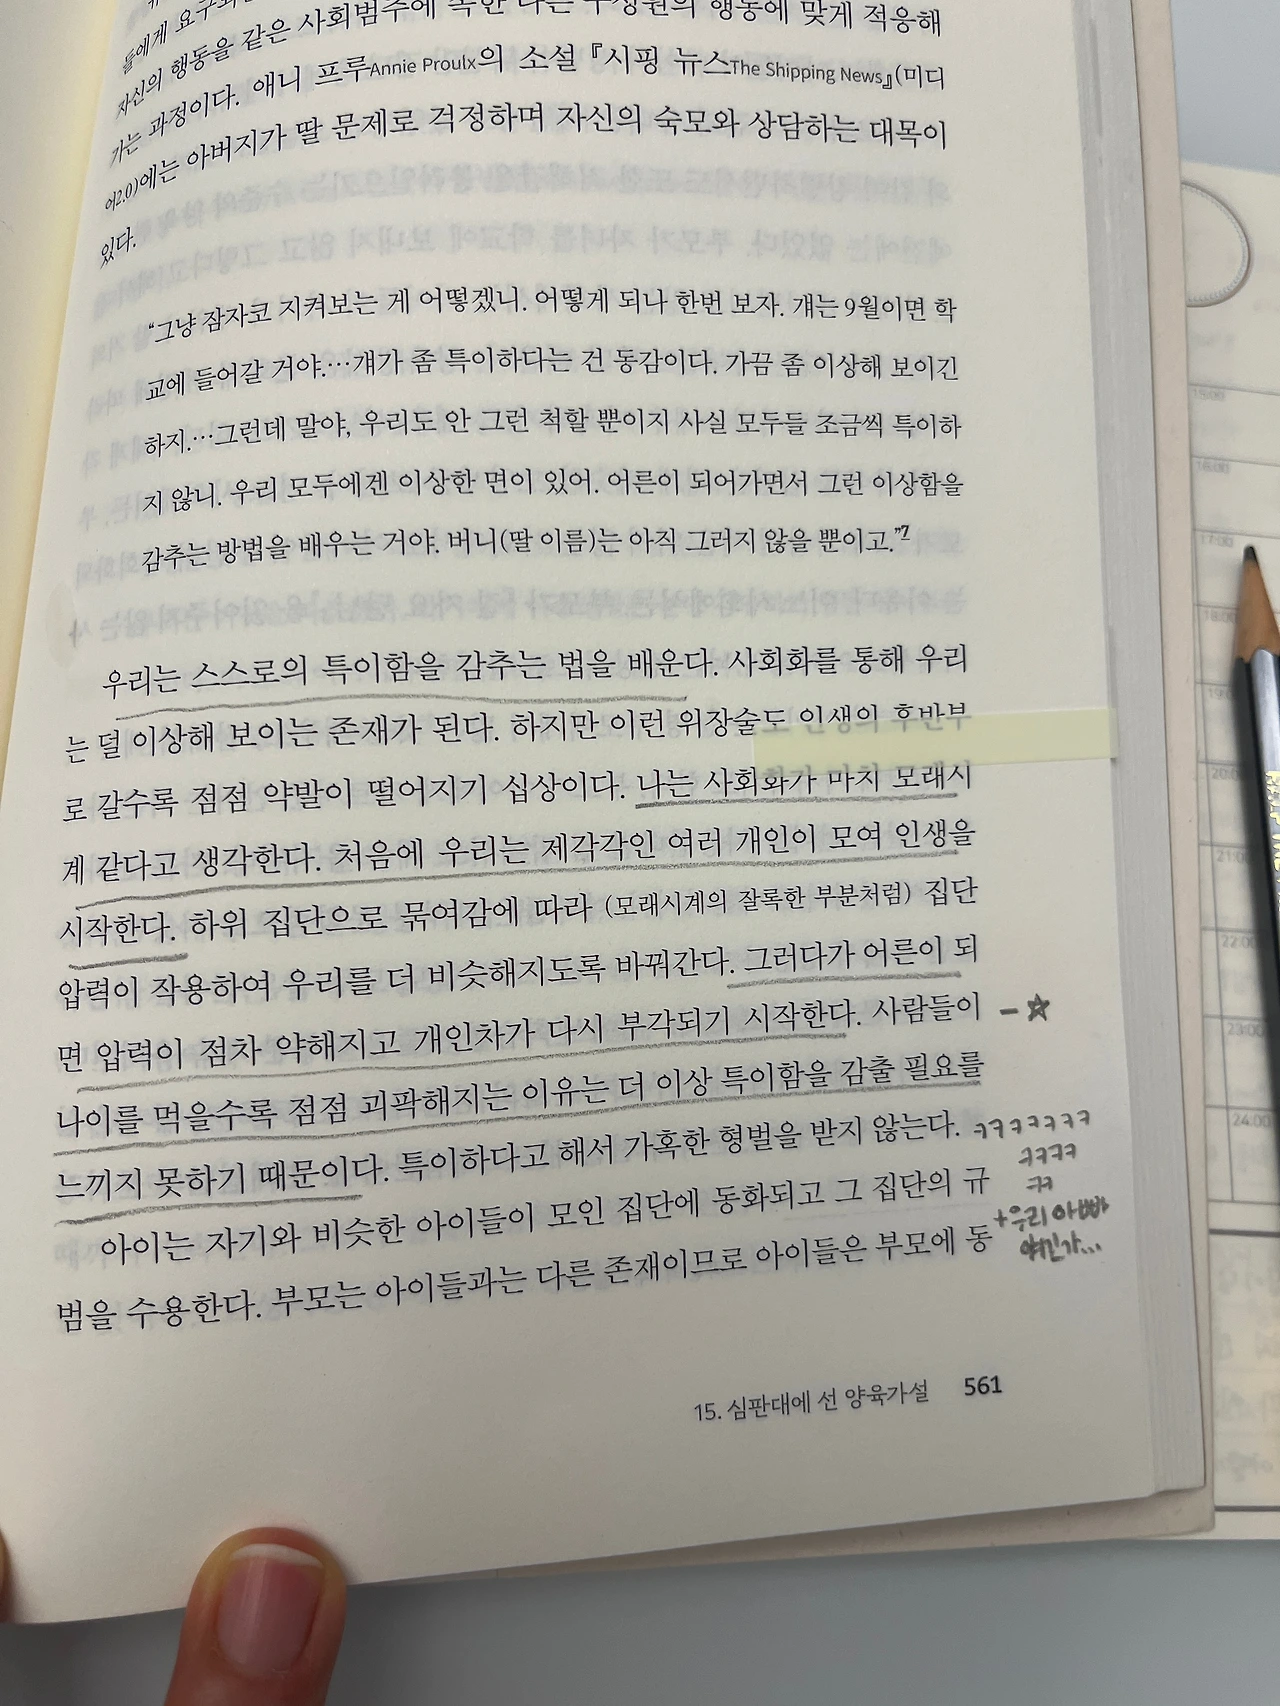 들에게
행동에 맞게 적응해
자신의 행동을 같은 사회범주에
가는 과정이다. 애니 프루Annie Proulx의 소설 『시핑 뉴스The Shipping News』(미디
어2.0)에는 아버지가 딸 문제로 걱정하며 자신의 숙모와 상담하는 대목이
있다.
“그냥 잠자코 지켜보는 게 어떻겠니. 어떻게 되나 한번 보자. 걔는 9월이면 학
교에 들어갈 거야.…걔가 좀 특이하다는 건 동감이다. 가끔 좀 이상해 보이긴
하지.…그런데 말야, 우리도 안 그런 척할 뿐이지 사실 모두들 조금씩 특이하
지 않니. 우리 모두에겐 이상한 면이 있어. 어른이 되어가면서 그런 이상함을
감추는 방법을 배우는 거야. 버니(딸 이름)는 아직 그러지 않을 뿐이고.”7
우리는 스스로의 특이함을 감추는 법을 배운다. 사회화를 통해 우리
는 덜 이상해 보이는 존재가 된다. 하지만 이런 위장술도 인생의 후반부
로 갈수록 점점 약발이 떨어지기 십상이다. 나는 사회화가 마치 모래시
계 같다고 생각한다. 처음에 우리는 제각각인 여러 개인이 모여 인생을
시작한다. 하위 집단으로 묶여감에 따라 (모래시계의 잘록한 부분처럼) 집단
압력이 작용하여 우리를 더 비슷해지도록 바꿔간다. 그러다가 어른이 되
면 압력이 점차 약해지고 개인차가 다시 부각되기 시작한다. 사람들이 -☆
나이를 먹을수록 점점 괴팍해지는 이유는 더 이상 특이함을 감출 필요를
느끼지 못하기 때문이다. 특이하다고 해서 가혹한 형벌을 받지 않는다. ㅋㅋㅋㅋㅋㅋㅋ
ㅋㅋㅋㅋ
ㅋㅋ
아이는 자기와 비슷한 아이들이 모인 집단에 동화되고 그 집단의 규
+우리 아빠
얘긴가...
범을 수용한다. 부모는 아이들과는 다른 존재이므로 아이들은 부모에 동
15. 심판대에 선 양육가설 561
17:00
18:00
20:00
21:00
22:00
23:00
24:00